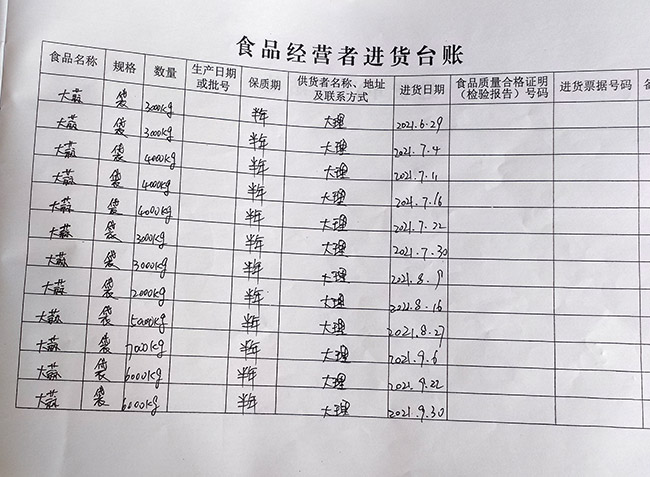 食品经营者进货台账
食品名称 规格 数量 生产日期或批号 保质期 供货者名称、地址及联系方式 进货日期 食品质量合格证明(检验报告)号码 进货票据号码 备
大蒜 袋 3000kg 半年 大理 2021.6.29
大蒜 袋 3000kg 半年 大理 2021.7.4
大蒜 袋 4000kg 半年 大理 2021.7.11
大蒜 袋 4000kg 半年 大理 2021.7.16
大蒜 袋 4000kg 半年 大理 2021.7.22
大蒜 袋 3000kg 半年 大理 2021.7.30
大蒜 袋 3000kg 半年 大理 2021.8.9
大蒜 袋 2000kg 半年 大理 2021.8.16
大蒜 袋 5000kg 半年 大理 2021.8.27
大蒜 袋 7000kg 半年 大理 2021.9.6
大蒜 袋 6000kg 半年 大理 2021.9.22
大蒜 袋 6000kg 半年 大理 2021.9.30